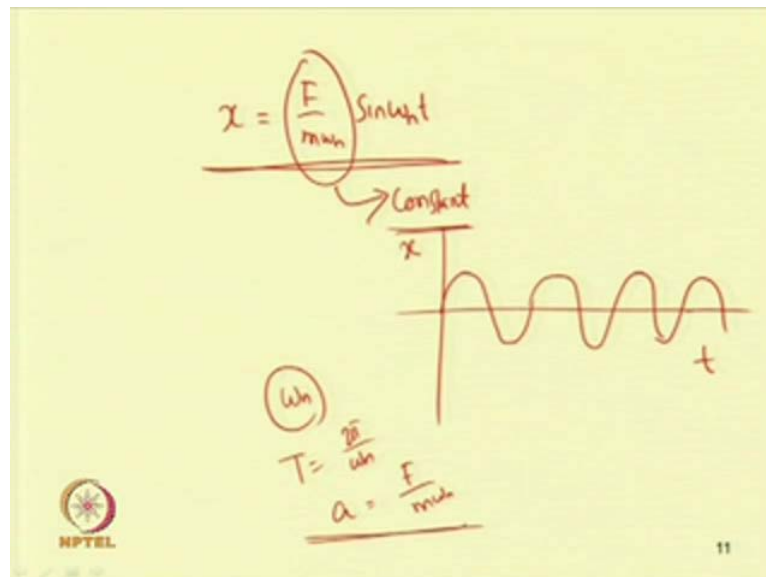 x = F/mωn Sinωnt
Constant
x
t
ωn
T = 2π/ωn
a = F/mωn
NPTEL
11